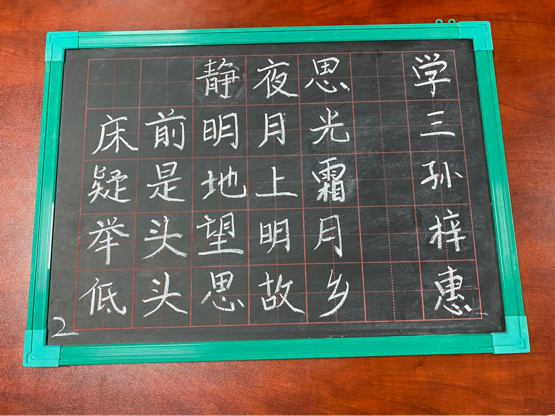 静夜思
床前明月光
疑是地上霜
举头望明月
低头思故乡
学三孙梓惠
2